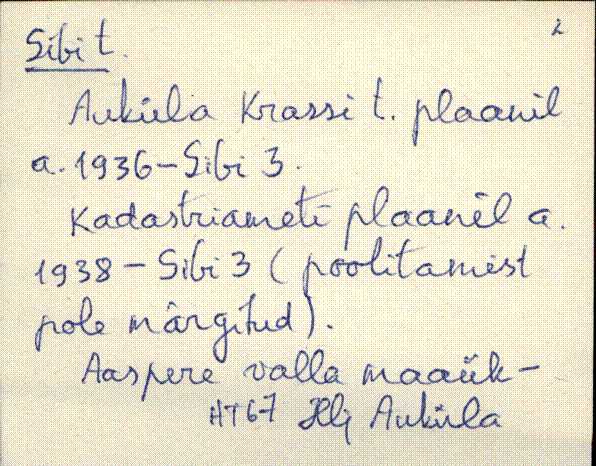 2
Sibi t.
Auküla Krassi t. plaanil
a. 1936 – Sibi 3.
Kadastriameti plaanil a.
1938 – Sibi 3 (poolitamist
pole märgitud).
Aaspere valla maaük-
HT67 Hlj Auküla